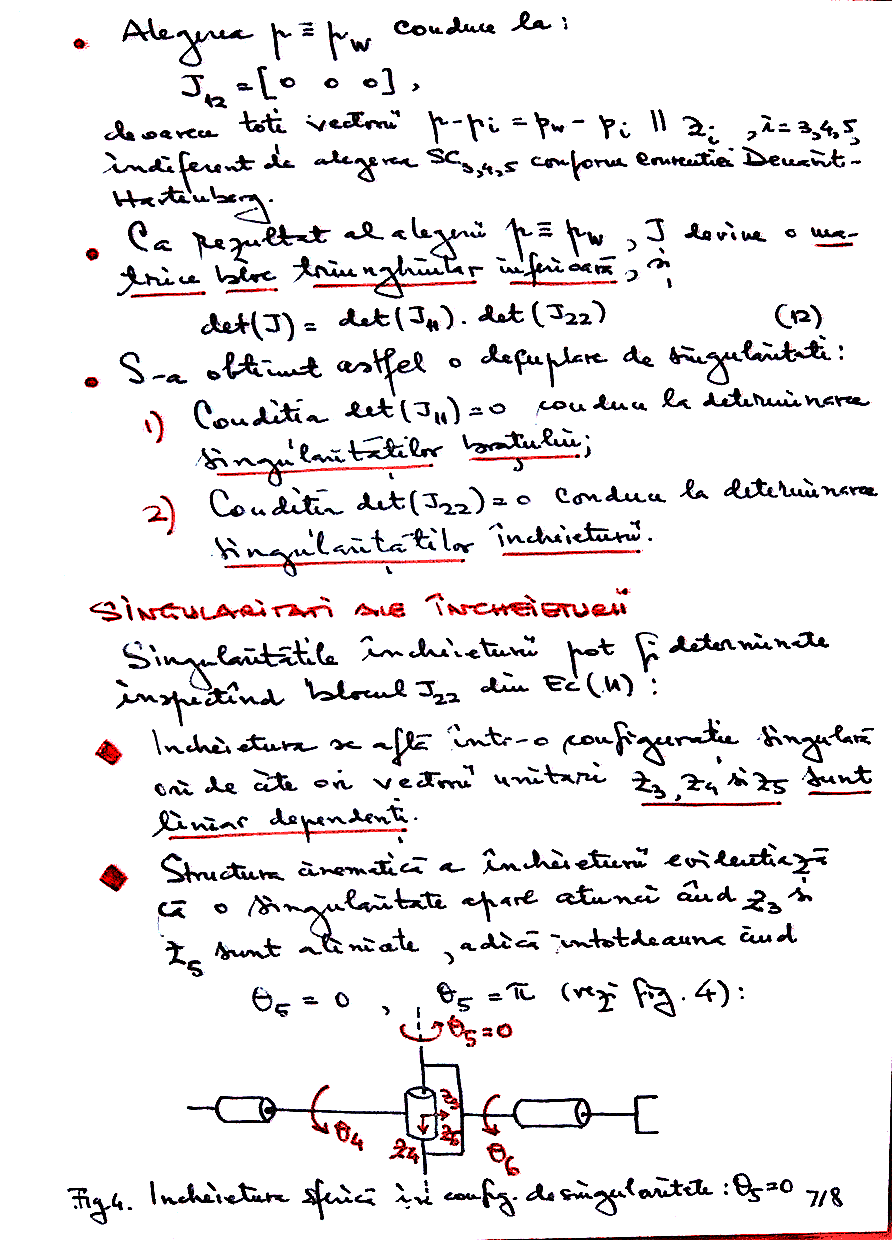 • Alegerea p ≡ p_W conduce la:
J_12 = [0 0 0],
deoarece toti vectorii p-p_i = p_W - p_i || z_i, i=3,4,5,
indiferent de alegerea SC_3,4,5 conform conventiei Denavit-
Hartenberg.
• Ca rezultat al alegerii p ≡ p_W, J devine o ma-
trice bloc triunghiular inferioară, și
det(J) = det(J_11) . det(J_22) (12)
• S-a obtinut astfel o decuplare de singularitati:
1) Conditia det(J_11)=0 conduce la determinarea
singularităților brațului;
2) Conditia det(J_22)=0 conduce la determinarea
singularităților încheieturii.
SINGULARITATI ALE ÎNCHEIETURII
Singularitățile încheieturii pot fi determinate
inspectînd blocul J_22 din Ec(11):
Incheietura se află într-o configurație singulară
ori de cîte ori vectorii unitari z_3, z_4 și z_5 sunt
liniar dependenți.
Structura cinematică a încheieturii evidentiază
că o singularitate apare atunci cînd z_3 și
z_5 sunt aliniate, adică întotdeauna cînd
θ_5 = 0, θ_5 = π (vezi fig. 4):
θ_5=0
z_3
θ_4 z_4 z_5 θ_6
Fig.4. Incheietura sferică în config. de singularitate: θ_5=0 7/8